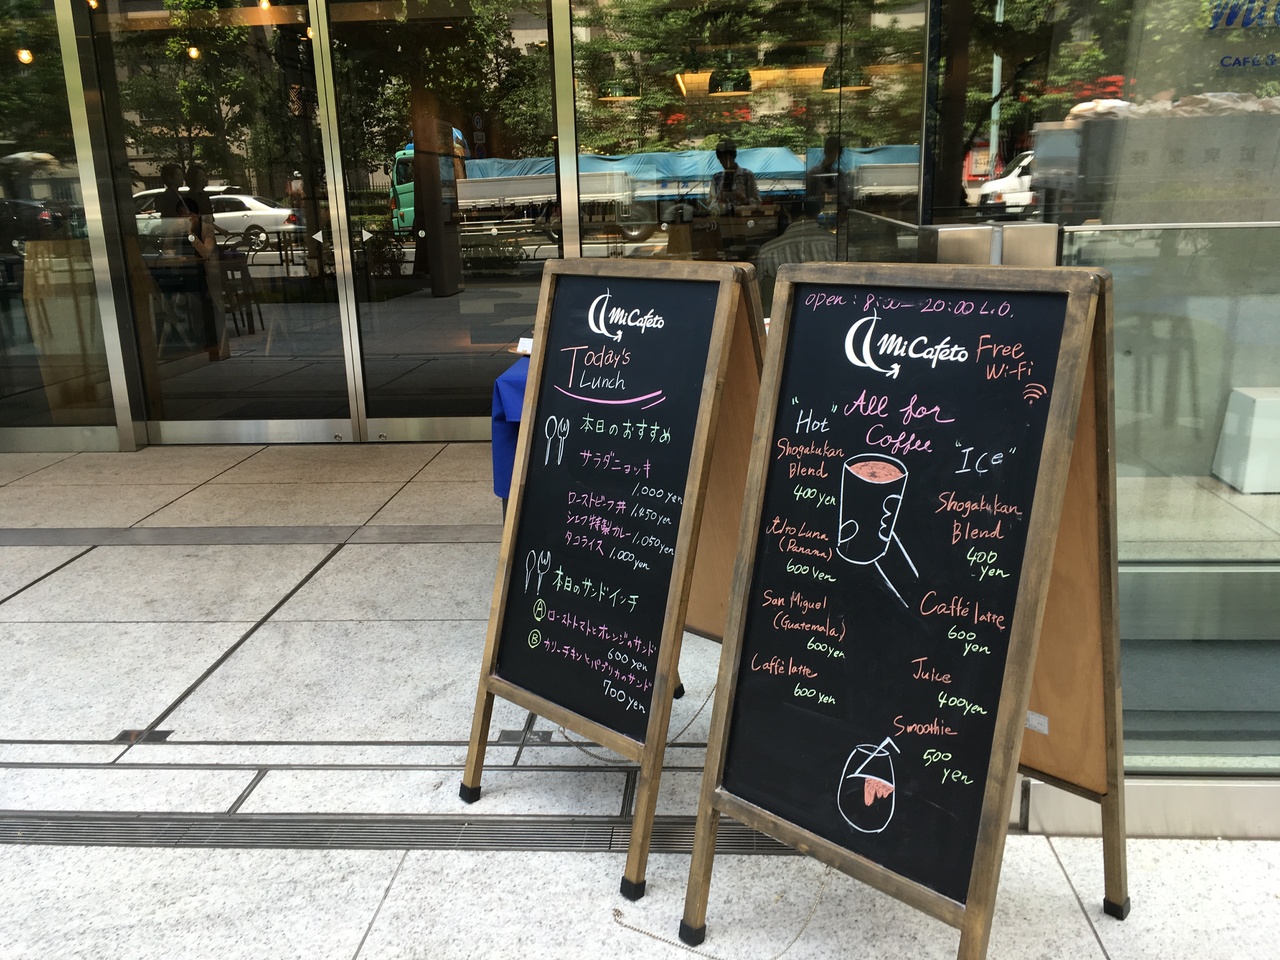 Mi Cafeto
Today's
Lunch
本日のおすすめ
サラダニョッキ
1,000 yen
ローストビーフ丼 1,450 yen
シェフ特製カレー 1,050 yen
タコライス 1,000 yen
本日のサンドイッチ
A ローストトマトとオレンジのサンド
600 yen
B カリーチキンとパプリカのサンド
700 yen
open : 8:00 – 20:00 L.O.
Mi Cafeto
Free
Wi-Fi
All for
Coffee
"Hot"
Shogakukan
Blend
400 yen
(Panama)
600 yen
San Miguel
(Guatemala)
600 yen
Caffé latte
600 yen
"ICe"
Shogakukan
Blend
400
yen
Caffé latte
600
yen
Juice
400 yen
Smoothie
500
yen
CAFÉ